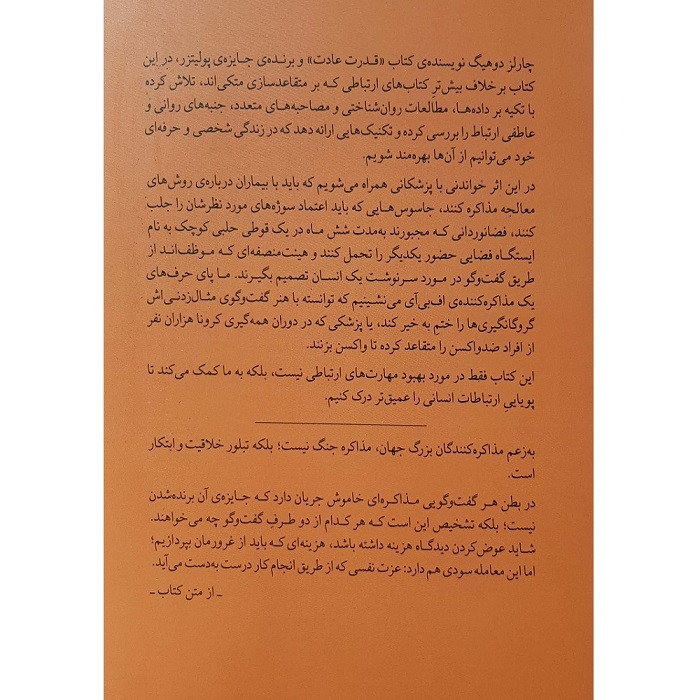 چارلز دوهیگ نویسنده‌ی کتاب «قدرت عادت» و برنده‌ی جایزه‌ی پولیتزر، در این
کتاب برخلاف بیش‌تر کتاب‌های ارتباطی که بر متقاعدسازی متکی‌اند، تلاش کرده
با تکیه بر داده‌ها، مطالعات روان‌شناختی و مصاحبه‌های متعدد، جنبه‌های روانی و
عاطفی ارتباط را بررسی کرده و تکنیک‌هایی ارائه دهد که در زندگی شخصی و حرفه‌ای
خود می‌توانیم از آن‌ها بهره‌مند شویم.
در این اثر خواندنی با پزشکانی همراه می‌شویم که باید با بیماران درباره‌ی روش‌های
معالجه مذاکره کنند، جاسوس‌هایی که باید اعتماد سوژه‌های مورد نظرشان را جلب
کنند، فضانوردانی که مجبورند به‌مدت شش ماه در یک قوطی حلبی کوچک به نام
ایستگاه فضایی حضور یکدیگر را تحمل کنند و هیئت‌منصفه‌ای که موظف‌اند از
طریق گفت‌وگو در مورد سرنوشت یک انسان تصمیم بگیرند. ما پای حرف‌های
یک مذاکره‌کننده‌ی اف‌بی‌آی می‌نشینیم که توانسته با هنر گفت‌وگوی مثال‌زدنی‌اش
گروگانگیری‌ها را ختم به خیر کند، یا پزشکی که در دوران همه‌گیری کرونا هزاران نفر
از افراد ضدواکسن را متقاعد کرده تا واکسن بزنند.
این کتاب فقط در مورد بهبود مهارت‌های ارتباطی نیست، بلکه به ما کمک می‌کند تا
پویاییِ ارتباطات انسانی را عمیق‌تر درک کنیم.
به‌زعم مذاکره‌کنندگان بزرگ جهان، مذاکره جنگ نیست؛ بلکه تبلور خلاقیت و ابتکار
است.
در بطن هر گفت‌وگویی مذاکره‌ای خاموش جریان دارد که جایزه‌ی آن برنده‌شدن
نیست؛ بلکه تشخیص این است که هر کدام از دو طرفِ گفت‌وگو چه می‌خواهند.
شاید عوض‌کردن دیدگاه هزینه داشته باشد، هزینه‌ای که باید از غرورمان بپردازیم؛
اما این معامله سودی هم دارد: عزت نفسی که از طریق انجام کار درست به‌دست می‌آید.
ـ از متن کتاب ـ